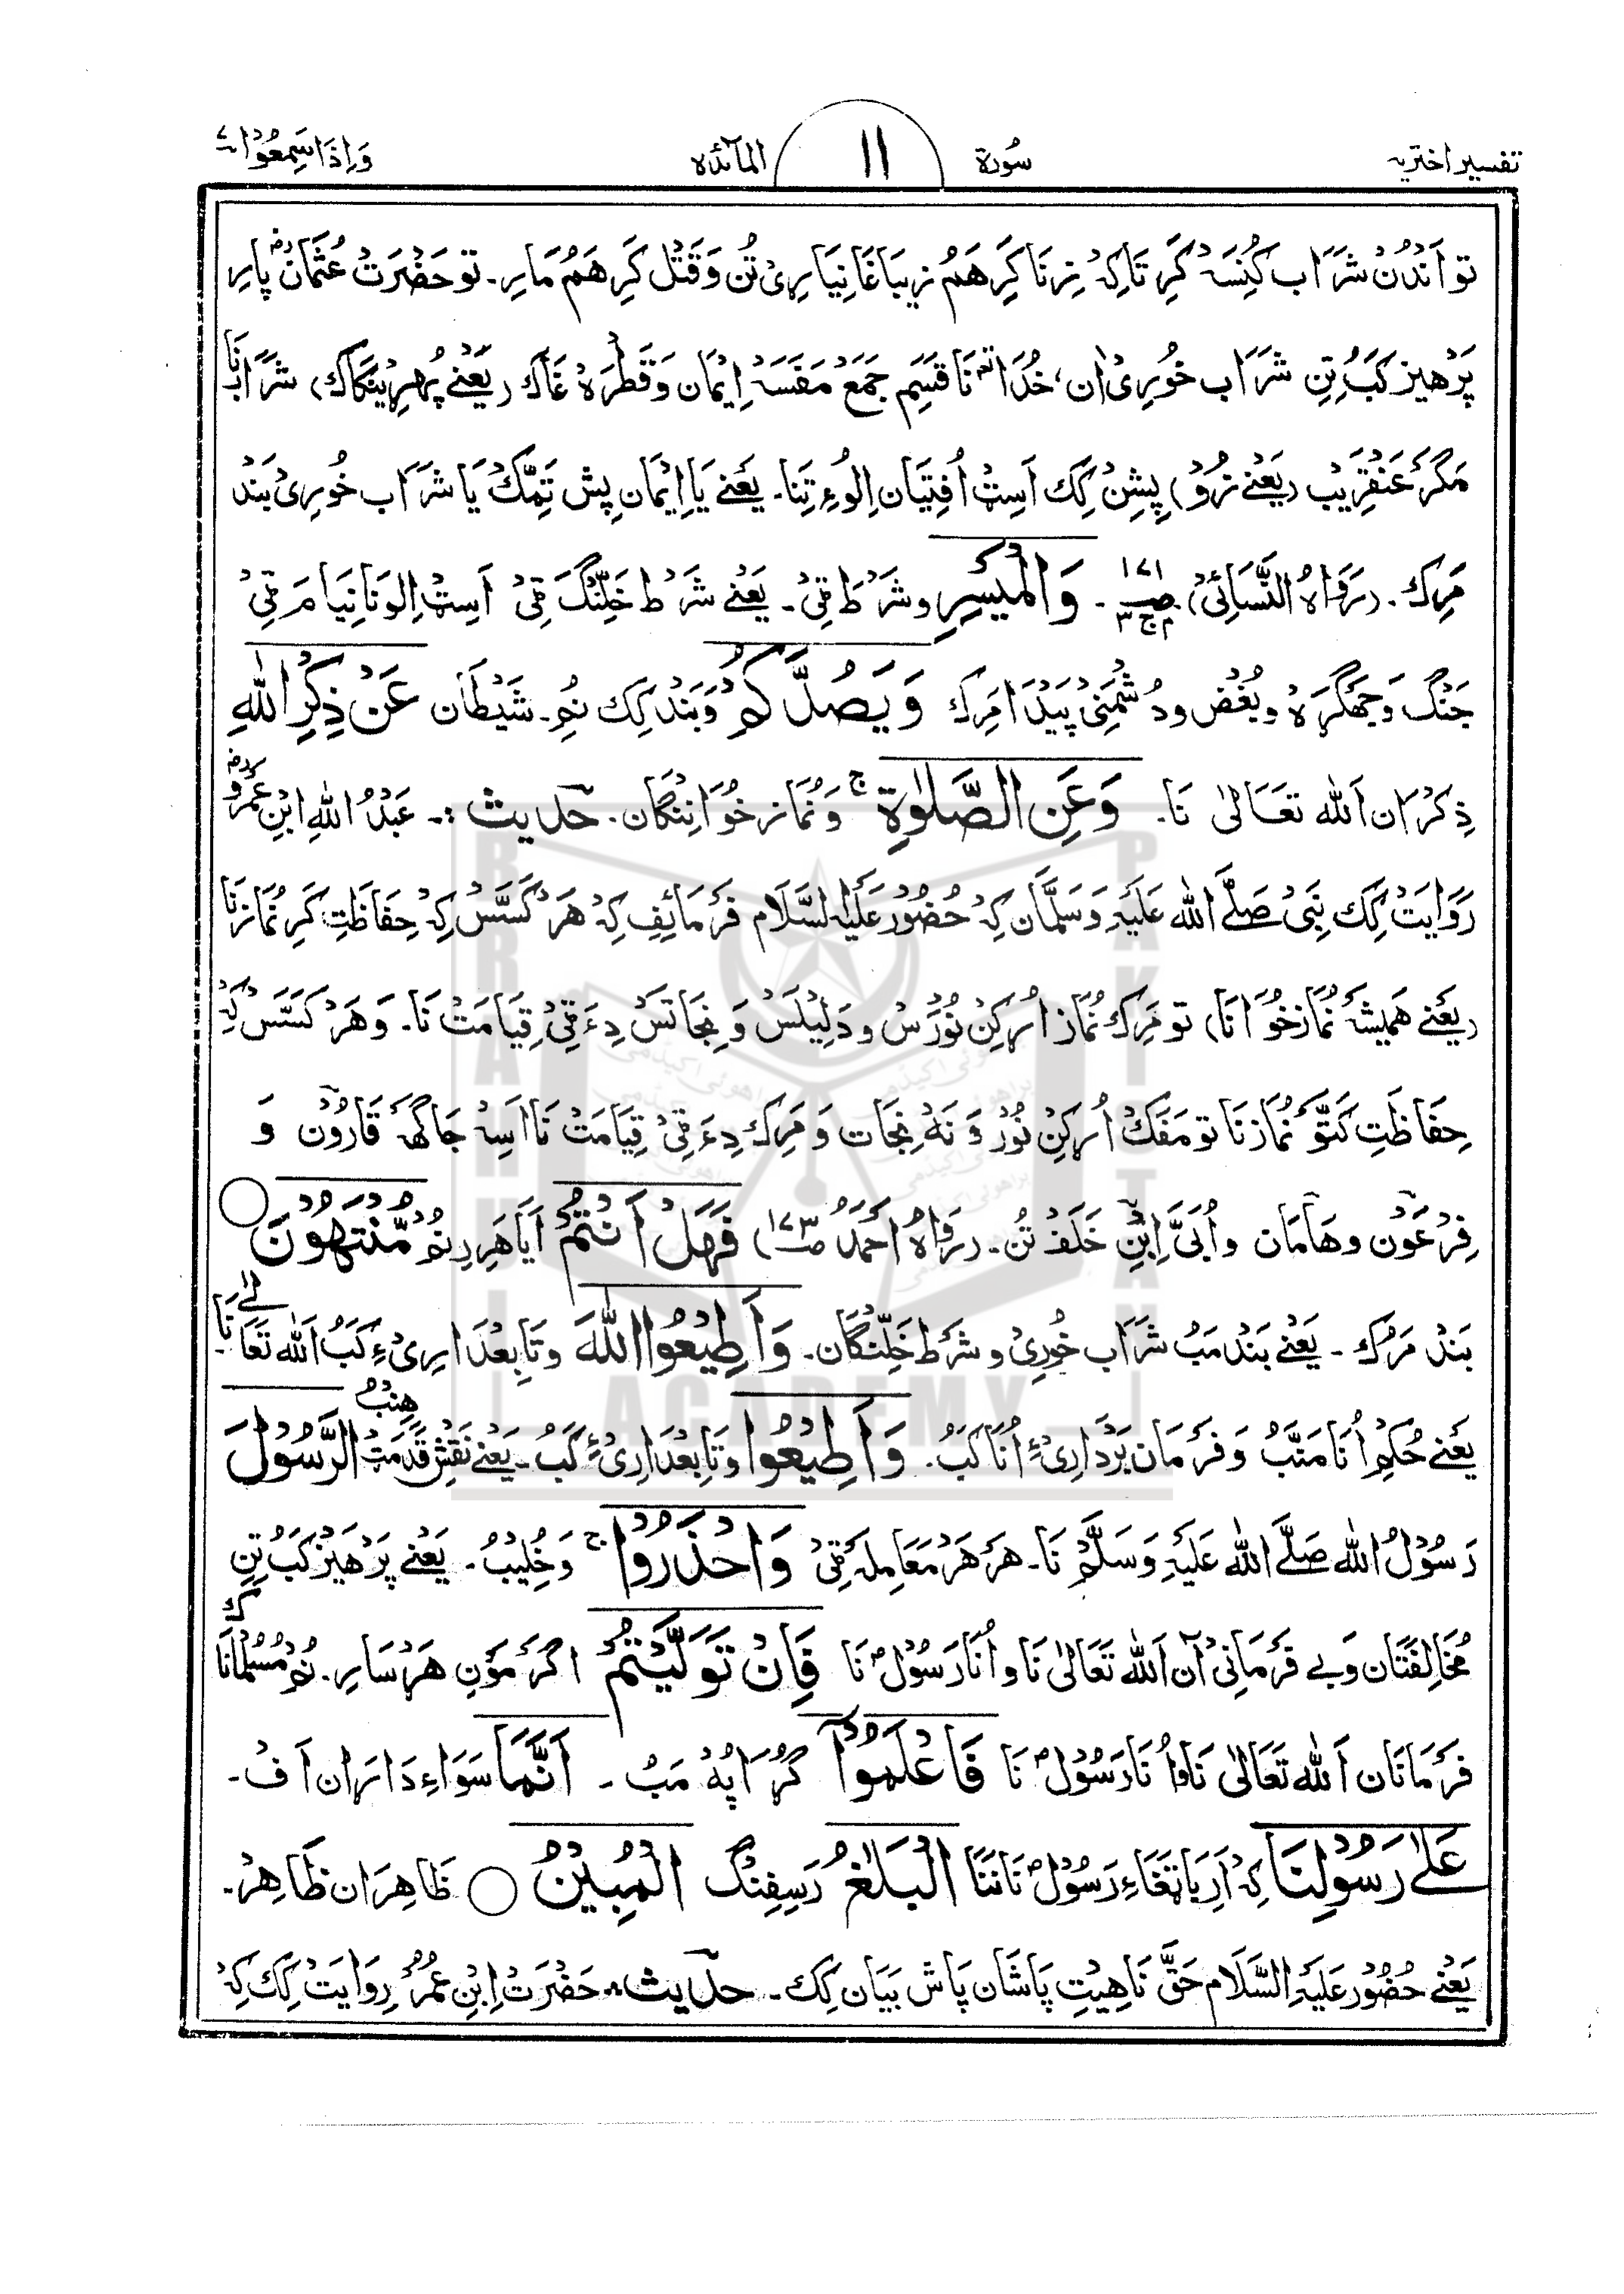 تفسیر اختریہ سُورة ١١ المآئدہ وَاِذَا سَمِعُوْا ۷
تو اَنْدُنْ شَرَاب کُنِسَہْ کَرِ تَاکِہْ زِنَا کَرِ هَمُ زیبَاغَا نِیَارِیْ تُن وَ قَتْل کَرِ هَمُ مَارِ۔ تو حَضْرَتْ عُثْمَانؓ پَارِ
پَرْهیز کَبُ تِنِ شَرَاب خُورِیْ اَن، خُدَا نَا قَسَم جَمَعْ مَفَسَہْ اِیْمَان وَ قَطْرَہْ غَاک (یَعْنے پُهِرِیْنَکَاک) شَرَابْ نَا
مَگَرْ عَنْقَرِیْب (یَعْنے زُوْ) پِشِنْ کِک اَسِٹْ اُفِتِیَان اِلُوءِ تِنَا۔ یَعْنے یَا اِیْمَان پِشِ تَمِّکْ یَا شَرَاب خُورِیْ بَنْد
مَرِک۔ (رَوَاہُ النَّسَائِیْ) صـ ١٧١ ج ٣۔ وَالْمَیْسِرِ وشَرْط قِیْ۔ یَعْنے شَرْط خَلِّنْگَ قِیْ اَسِٹْ اِلونَا نِیَام قِیْ
جَنْگ وَ جَهگَرَہْ وبُغْض ودُشْمَنِیْ پَیْدَا مَرِک وَیَصُدَّکُمْ وَبَنْد کِک نُمِ۔ شَیْطَان عَنْ ذِکْرِ اللهِ
ذِکْرَان اَلله تَعَالیٰ نَا۔ وَعَنِ الصَّلٰوةِ ج وَنُمَاز خُوَانِنْگان۔ حدیث :۔ عَبْدُ اللهِ ابْنِ عَمْروؓ
رَوَایَتْ کِک نَبِیْ صَلَّے الله عَلَیْہِ وَسَلَّمَان کِہْ حُضُوْر عَلَیْہِ السَّلَام فَرْمَائِفِ کِہْ هَرْ کَسَّسْ کِہْ حِفَاظَتِ کَرِ نُمَاز نَا
(یَعْنے هَمِیْشَہْ نُمَاز خُوَانَا) تو مَرِک نُمَاز اُرکِنْ نُوْرَسْ ودَلِیْلَسْ وَ نِجَاتَسْ دِءَ قِیْ قِیَامَتْ نَا۔ وَهَرْ کَسَّسْ کِہْ
حِفَاظَتِ کَتَّو نُمَاز نَا تو مَفَکْ اُرکِنْ نُوْر وَ نَهْ نِجَات وَ مَرِک دِءَ قِیْ قِیَامَتْ نَا اَسِہْ جَاگهَ قَارُوْن وَ
فِرْعَوْن وهَامَان واُبَیَّ اِبْنِ خَلَفْ تُن۔ (رَوَاہُ اَحْمَدُ صـ ١٧٣) فَهَلْ اَنْتُمْ اَیَا هَرِ نُمْ مُّنْتَهُوْنَ
بَنْد مَرُک ۔ یَعْنے بَنْد مَبُ شَرَاب خُورِیْ و شَرْط خَلِّنْگان۔ وَاَطِیْعُوا اللّٰهَ وتَابِعْدَارِیْءِ کَبُ اَلله تَعَالٰے نَا۔
یَعْنے حُکْمِ اُنَا مَنَّبُ وَفَرْمَان بَرْدَارِیْءِ اُنَا کَبُ۔ وَاَطِیْعُوا وتَابِعْدَارِیْءِ کَبُ۔ یَعْنے نَقْشِ قَدَمَتْ هِنَبُ الرَّسُوْلَ
رَسُوْلُ الله صَلَّے الله عَلَیْہِ وَسَلَّمْ نَا۔ هَرْ هَرْ مُعَامِلَہ قِیْ وَاحْذَرُوْا ج وَخُلِیْبُ۔ یَعْنے پَرْهِیْز کَبُ تِنِ
مُخَالِفَتَان وَبے فَرْمَانِیْ آن اَلله تَعَالیٰ نَا و اُنَا رَسُوْلؐ نَا فَاِنْ تَوَلَّیْتُمْ اَگَرْ مَوْنِ هَرْسَارِ۔ نُمْ مُسُلْمَانَاک
فَرْمَانَان اَلله تَعَالیٰ نَا و اُنَا رَسُوْلؐ نَا فَاعْلَمُوْٓا گُرَاپُهْ مَبُ ۔ اَنَّمَا سَوَاءِ دَارَان اَفْ۔
عَلٰے رَسُوْلِنَا کِہْ اَرِ بَاتِغَاءِ رَسُوْلؐ نَا نَنَا الْبَلٰغُ رَسِفِنْگ الْمُبِیْنُ ظَاهِرَان ظَاهِرْ۔
یَعْنے حُضُوْر عَلَیْہِ السَّلَام حَقّ نَا هِیْتِ پَاشَان پَاش بَیَان کِک۔ حدیث:۔ حَضْرَتْ اِبْنِ عُمَرْ رِوَایَتْ کِک کِہْ
BRAHUI
ACADEMY
PAKISTAN